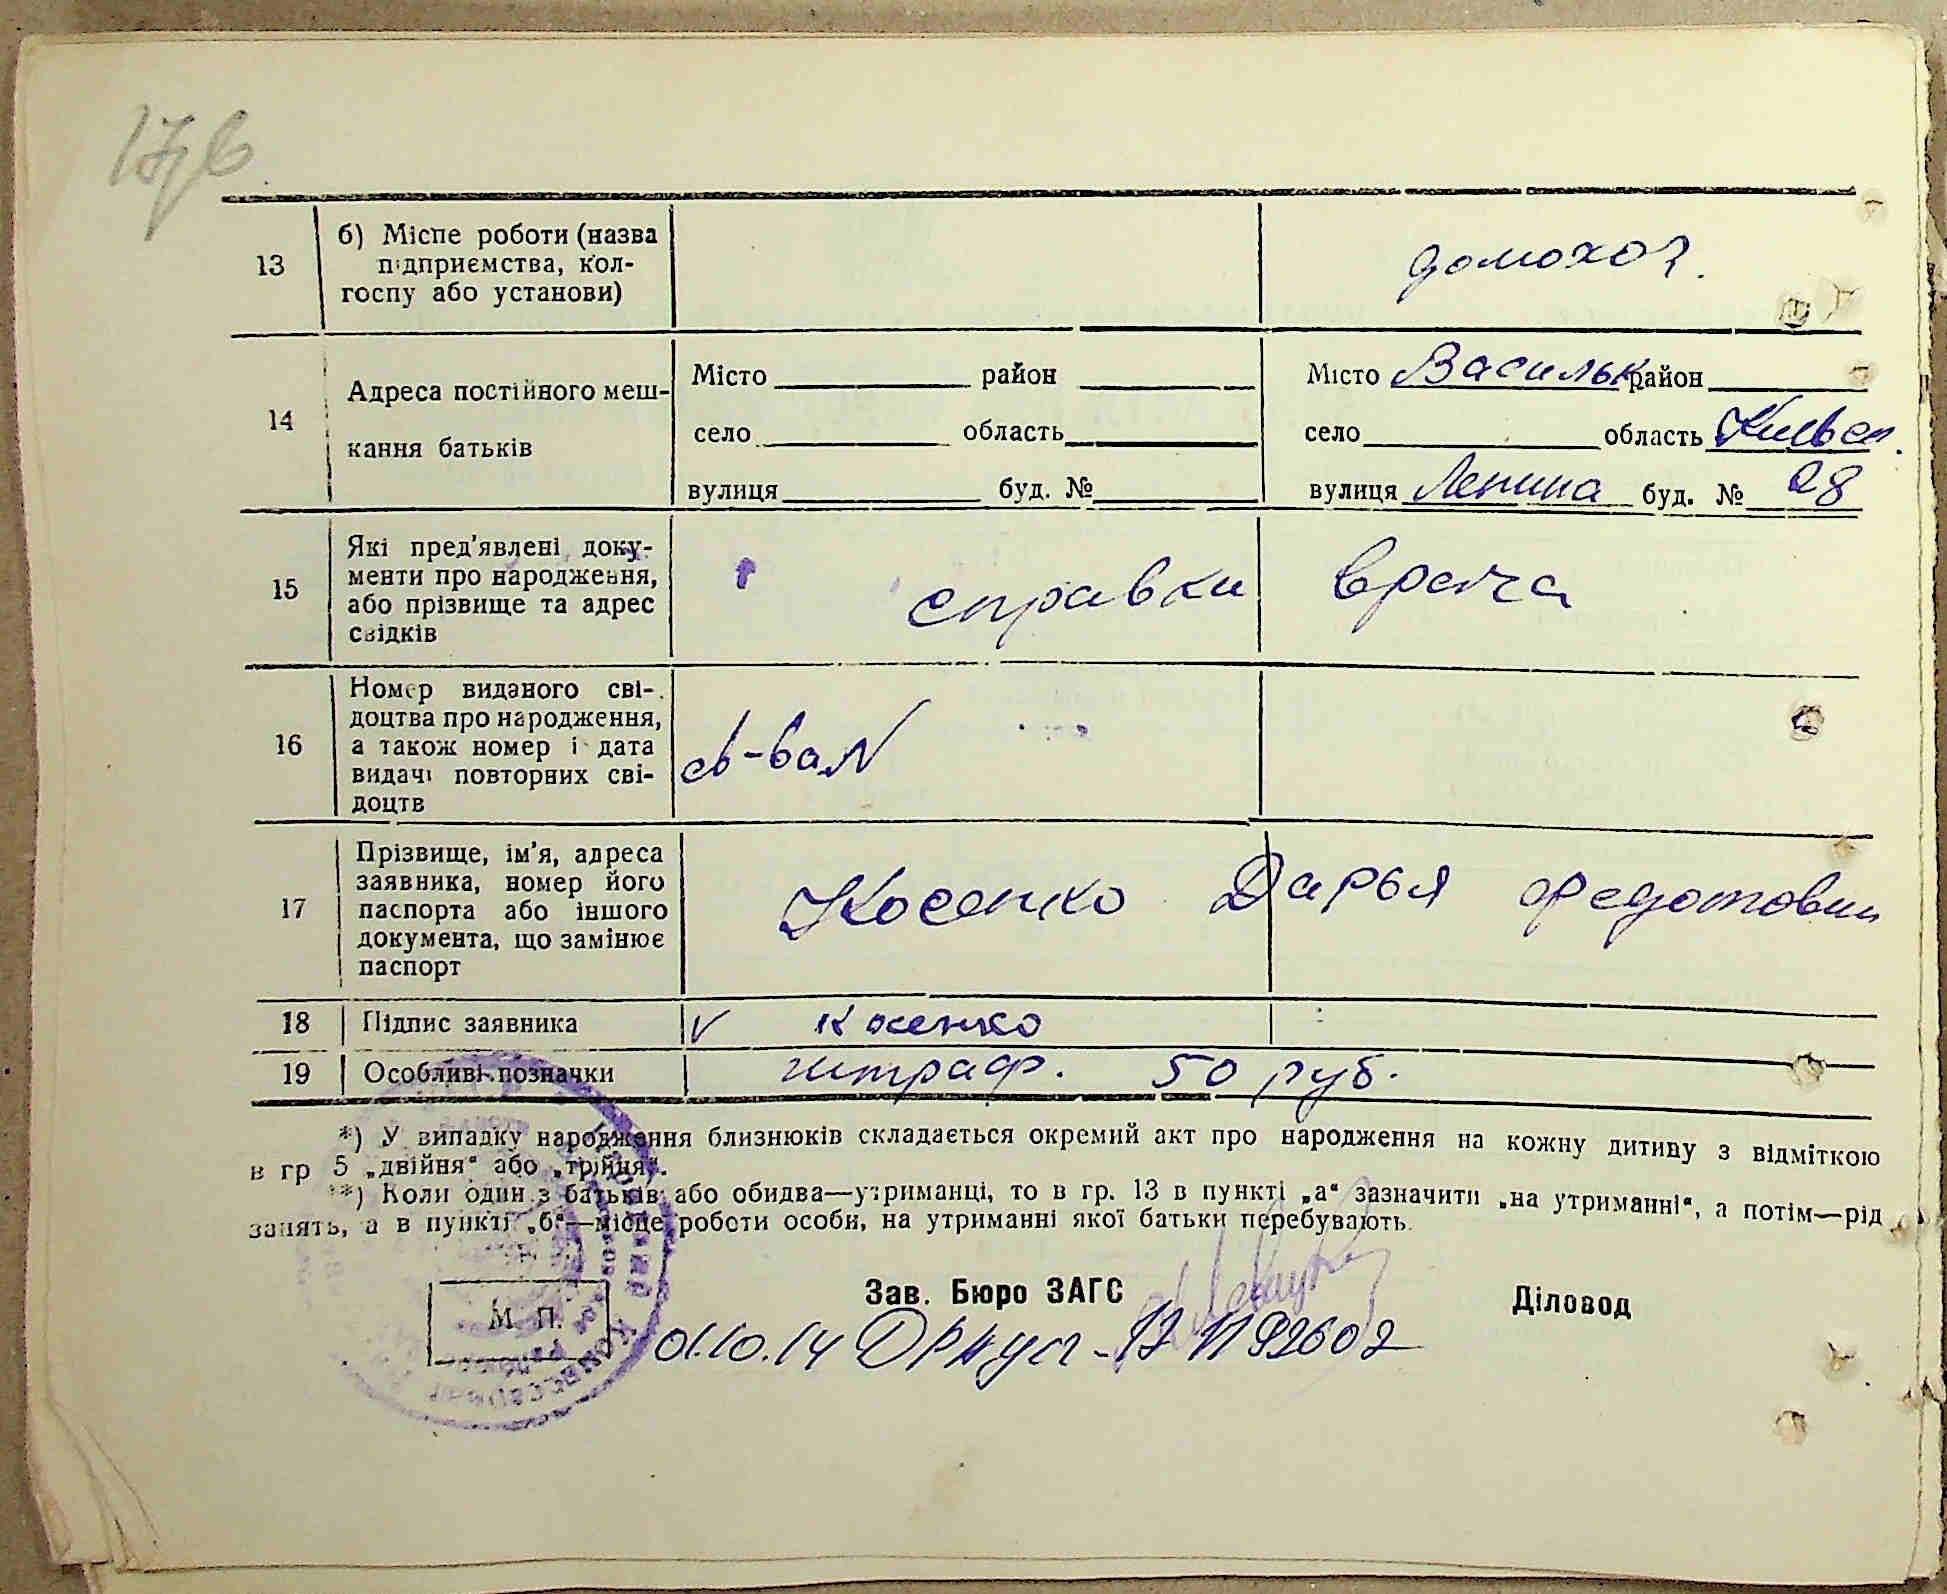 13
б) Місце роботи (назва
підприємства, кол-
госпу або установи)
домохоз.
14
Адреса постійного меш-
кання батьків
Місто район
село область
вулиця буд. №
Місто Васильк район
село область Киевск.
вулиця Ленина буд. № 28
15
Які пред'явлені доку-
менти про народження,
або прізвище та адрес
свідків
справки врача
16
Номер виданого сві-
доцтва про народження,
а також номер і дата
видачі повторних сві-
доцтв
св-ва N
17
Прізвище, ім'я, адреса
заявника, номер його
паспорта або іншого
документа, що замінює
паспорт
Косенко Дарья Федотовна
18
Підпис заявника
V Косенко
19
Особливі позначки
штраф. 50 руб.
*) У випадку народження близнюків складається окремий акт про народження на кожну дитину з відміткою
в гр 5 „двійня“ або „трійня“.
**) Коли один з батьків або обидва—утриманці, то в гр. 13 в пункті „а“ зазначити „на утриманні“, а потім—рід
занять, а в пункті „б“—місце роботи особи, на утриманні якої батьки перебувають.
Зав. Бюро ЗАГС
Діловод
М. П.